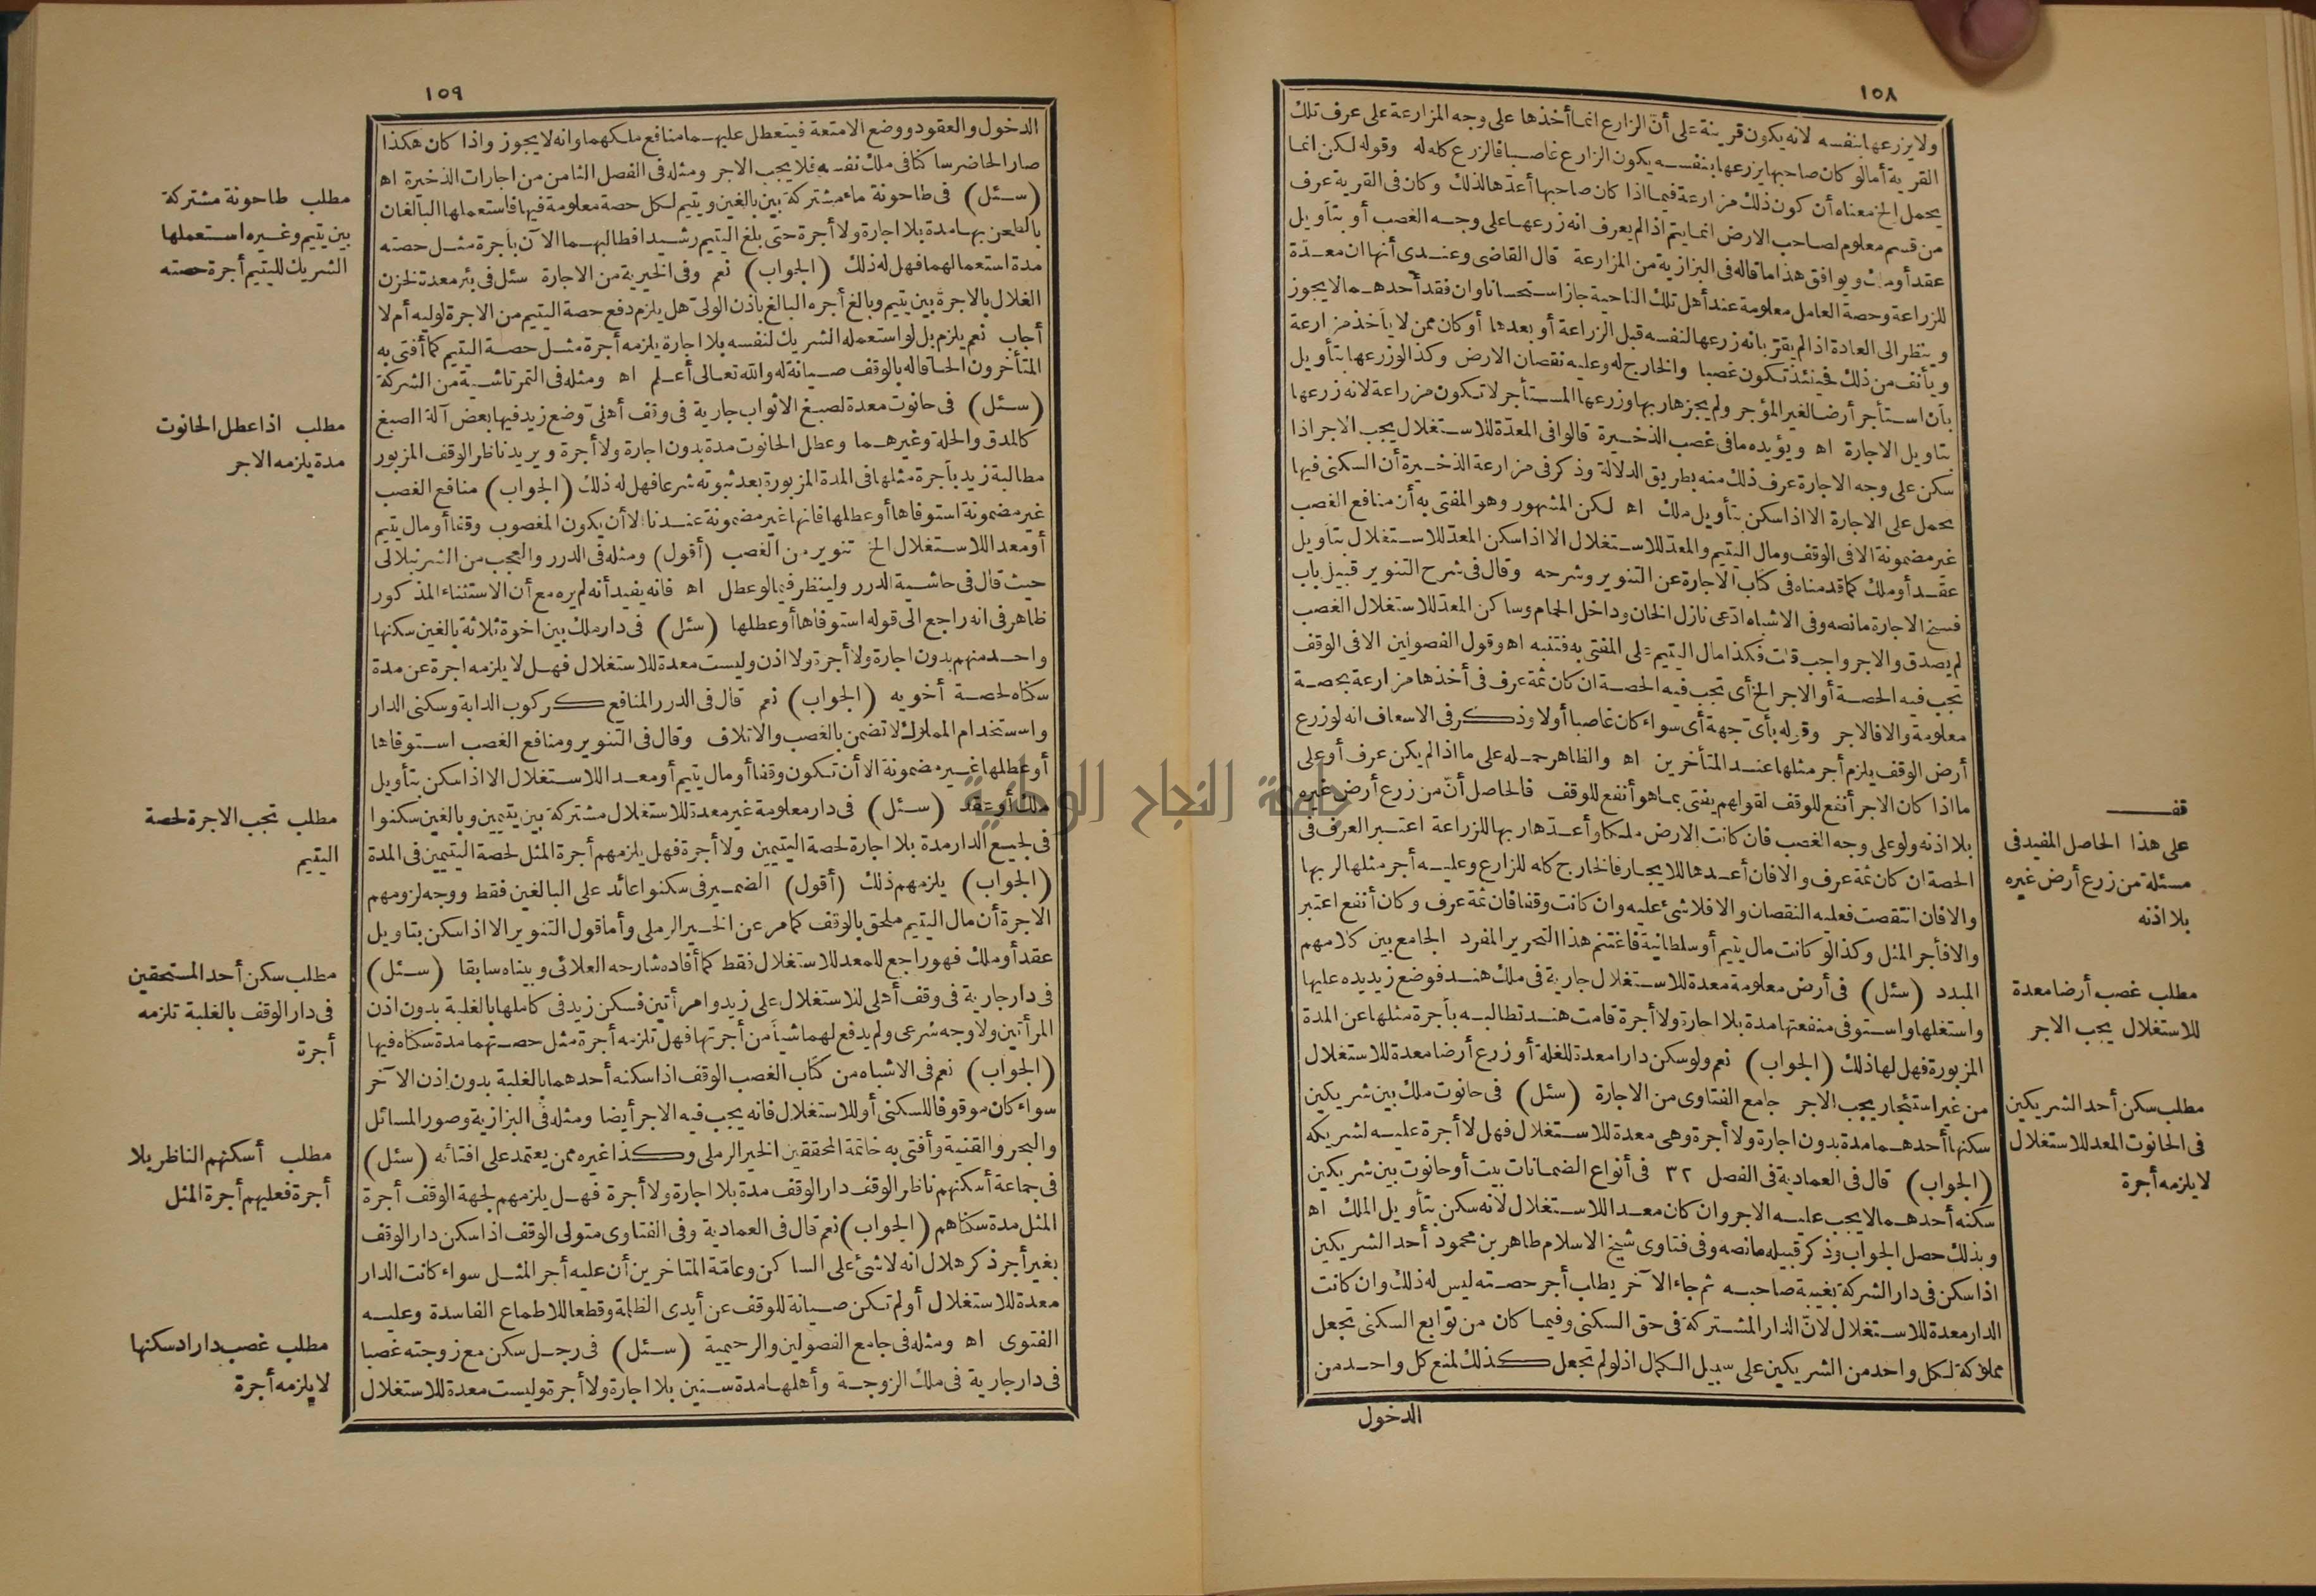 ١٠٨
ولا يزرعها بنفسه لانه يكون قرينة على أن الزارع انما أخذها على وجه المزارعة على عرف تلك
القرية أما لو كان صاحبها يزرعها بنفسه يكون الزارع غاصبا فالزرع كله له وقوله لكن انما
يحمل الخ معناه أن كون ذلك مزارعة فيما اذا كان صاحبها أعدّها لذلك وكان فى القرية عرف
من قسم معلوم لصاحب الارض انما يتم اذا لم يعرف انه زرعها على وجه الغصب أو بتأويل
عقد أو ملك ويوافق هذا ما قاله فى البزازية من المزارعة قال القاضى وعندى أنها ان معدّة
للزراعة وحصة العامل معلومة عند أهل تلك الناحية جاز استحسانا وان فقد أحدهما لا يجوز
وينظر الى العادة اذا لم يقرّ بانه زرعها لنفسه قبل الزراعة أو بعدها أو كان ممن لا يأخذ مزارعة
ويأنف من ذلك فحينئذ تكون غصبا والخارج له وعليه نقصان الارض وكذا لو زرعها بتأويل
بأن استأجر أرضا لغير المؤجر ولم يجزها ربها وزرعها المستأجر لا تكون مزارعة لانه زرعها
بتاويل الاجارة اه ويؤيده ما فى غصب الذخيرة قالوا فى المعدّة للاستغلال يجب الاجر اذا
سكن على وجه الاجارة عرف ذلك منه بطريق الدلالة وذكر فى مزارعة الذخيرة أن السكنى فيها
تحمل على الاجارة الا اذا سكن بتأويل ملك اه لكن المشهور وهو المفتى به أن منافع الغصب
غير مضمونة الا فى الوقف ومال اليتيم والمعدّ للاستغلال الا اذا سكن المعدّ للاستغلال بتأويل
عقد أو ملك كما قدمناه فى كتاب الاجارة عن التنوير وشرحه وقال فى شرح التنوير قبيل باب
فسخ الاجارة ما نصه وفى الاشباه ادّعى نازل الخان وداخل الحمام وساكن المعدّ للاستغلال الغصب
لم يصدق والاجر واجب قلت فكذا مال اليتيم على المفتى به فتنبه اه وقول الفصولين الا فى الوقف
تجب فيه الحصة أو الاجر الخ أى تجب فيه الحصة ان كان ثمة عرف فى أخذها مزارعة بحصة
معلومة والا فالاجر وقوله بأى جهة أى سواء كان غاصبا أولا وذكر فى الاسعاف انه لو زرع
أرض الوقف يلزم أجر مثلها عند المتأخرين اه والظاهر حمله على ما اذا لم يكن عرف أو على
ما اذا كان الاجر أنفع للوقف لقولهم يفتى بما هو أنفع للوقف فالحاصل أنّ من زرع أرض غيره
بلا اذنه ولو على وجه الغصب فان كانت الارض ملكا وأعدّها ربها للزراعة اعتبر العرف فى
الحصة ان كان ثمة عرف والا فان أعدها للايجار فالخارج كله للزارع وعليه أجر مثلها لربها
والا فان انتقصت فعليه النقصان والا فلا شئ عليه وان كانت وقفا فان ثمة عرف وكان أنفع اعتبر
والا فأجر المثل وكذا لو كانت مال يتيم أو سلطانية فاغتنم هذا التحرير المفرد الجامع بين كلامهم
المبدد (سئل) فى أرض معلومة معدة للاستغلال جارية فى ملك هند فوضع زيد يده عليها
واستغلها واستوفى منفعتها مدة بلا اجارة ولا أجرة قامت هند تطالبه بأجرة مثلها عن المدة
المزبورة فهل لها ذلك (الجواب) نعم ولو سكن دارا معدة للغلة أو زرع أرضا معدة للاستغلال
من غير استئجار يجب الاجر جامع الفتاوى من الاجارة (سئل) فى حانوت ملك بين شريكين
سكنها أحدهما مدة بدون اجارة ولا أجرة وهى معدة للاستغلال فهل لا أجرة عليه لشريكه
(الجواب) قال فى العمادية فى الفصل ٣٢ فى أنواع الضمانات بيت أو حانوت بين شريكين
سكنه أحدهما لا يجب عليه الاجر وان كان معدا للاستغلال لانه سكن بتأويل الملك اه
وبذلك حصل الجواب وذكر قبيله ما نصه وفى فتاوى شيخ الاسلام طاهر بن محمود أحد الشريكين
اذا سكن فى دار الشركة بغيبة صاحبه ثم جاء الآخر يطلب أجر حصته ليس له ذلك وان كانت
الدار معدة للاستغلال لانّ الدار المشتركة فى حق السكنى وفيما كان من توابع السكنى تجعل
مملوكة لكل واحد من الشريكين على سبيل الكمال اذ لو لم تجعل كذلك لمنع كل واحد من
الدخول
قف
على هذا الحاصل المفيد فى
مسئلة من زرع أرض غيره
بلا اذنه
مطلب غصب أرضا معدة
للاستغلال يجب الاجر
مطلب سكن أحد الشريكين
فى الحانوت المعد للاستغلال
لا يلزمه أجرة
١٥٩
الدخول والعقود ووضع الامتعة فيتعطل عليهما منافع ملكهما وانه لا يجوز واذا كان هكذا
صار الحاضر ساكنا فى ملك نفسه فلا يجب الاجر ومثله فى الفصل الثامن من اجارات الذخيرة اه
(سئل) فى طاحونة ماء مشتركة بين بالغين ويتيم لكل حصة معلومة فيها فاستعملها البالغان
بالطحن بها مدة بلا اجارة ولا أجرة حتى بلغ اليتيم رشيدا فطالبهما الآن بأجرة مثل حصته
مدة استعمالهما فهل له ذلك (الجواب) نعم وفى الخيرية من الاجارة سئل فى بئر معدة لخزن
الغلال بالاجرة بين يتيم وبالغ أجره البالغ باذن الولىّ هل يلزم دفع حصة اليتيم من الاجرة لوليه أم لا
أجاب نعم يلزم بل لو استعمله الشريك لنفسه بلا اجارة يلزمه أجرة مثل حصة اليتيم كما أفتى به
المتأخرون الحاقا له بالوقف صيانة له والله تعالى أعلم اه ومثله فى التمرتاشية من الشركة
(سئل) فى حانوت معدة لصبغ الاثواب جارية فى وقف أهلىّ وضع زيد فيها بعض آلة الصبغ
كالمدق والحلة وغيرهما وعطل الحانوت مدة بدون اجارة ولا أجرة ويريد ناظر الوقف المزبور
مطالبة زيد بأجرة مثلها فى المدة المزبورة بعد ثبوته شرعا فهل له ذلك (الجواب) منافع الغصب
غير مضمونة استوفاها أو عطلها فانها غير مضمونة عندنا الا أن يكون المغصوب وقفا أو مال يتيم
أو معدا للاستغلال الخ تنوير من الغصب (أقول) ومثله فى الدرر والعجب من الشرنبلالى
حيث قال فى حاشية الدرر ولينظر فيما لو عطل اه فانه يفيد أنه لم يره مع أن الاستثناء المذكور
ظاهر فى انه راجع الى قوله استوفاها أو عطلها (سئل) فى دار ملك بين اخوة ثلاثة بالغين سكنها
واحد منهم بدون اجارة ولا أجرة ولا اذن وليست معدة للاستغلال فهل لا يلزمه اجرة عن مدة
سكناه لحصة أخويه (الجواب) نعم قال فى الدرر المنافع كركوب الدابة وسكنى الدار
واستخدام المملوك لا تضمن بالغصب والاتلاف وقال فى التنوير ومنافع الغصب استوفاها
أو عطلها غير مضمونة الا أن تكون وقفا أو مال يتيم أو معدا للاستغلال الا اذا سكن بتأويل
ملك أو عقد (سئل) فى دار معلومة غير معدة للاستغلال مشتركة بين يتيمين وبالغين سكنوا
فى جميع الدار مدة بلا اجارة لحصة اليتيمين ولا أجرة فهل يلزمهم أجرة المثل لحصة اليتيمين فى المدة
(الجواب) يلزمهم ذلك (أقول) الضمير فى سكنوا عائد على البالغين فقط ووجه لزومهم
الاجرة أن مال اليتيم ملحق بالوقف كما مر عن الخير الرملى وأما قول التنوير الا اذا سكن بتاويل
عقد أو ملك فهو راجع للمعد للاستغلال فقط كما أفاده شارحه العلائى وبيناه سابقا (سئل)
فى دار جارية فى وقف أهلى للاستغلال على زيد وامرأتين فسكن زيد فى كاملها بالغلبة بدون اذن
المرأتين ولا وجه شرعى ولم يدفع لهما شيأ من أجرتها فهل تلزمه أجرة مثل حصتهما مدة سكناه فيها
(الجواب) نعم فى الاشباه من كتاب الغصب الوقف اذا سكنه أحدهما بالغلبة بدون اذن الآخر
سواء كان موقوفا للسكنى أو للاستغلال فانه يجب فيه الاجر أيضا ومثله فى البزازية وصور المسائل
والبحر والقنية وأفتى به خاتمة المحققين الخير الرملى وكذا غيره ممن يعتمد على افتائه (سئل)
فى جماعة أسكنهم ناظر الوقف دار الوقف مدة بلا اجارة ولا أجرة فهل يلزمهم لجهة الوقف أجرة
المثل مدة سكناهم (الجواب) نعم قال فى العمادية وفى الفتاوى متولى الوقف اذا سكن دار الوقف
بغير أجر ذكر هلال انه لا شئ على الساكن وعامّة المتاخرين أن عليه أجر المثل سواء كانت الدار
معدة للاستغلال أو لم تكن صيانة للوقف عن أيدى الظلمة وقطعا للاطماع الفاسدة وعليه
الفتوى اه ومثله فى جامع الفصولين والرحيمية (سئل) فى رجل سكن مع زوجته غصبا
فى دار جارية فى ملك الزوجة وأهلها مدة سنين بلا اجارة ولا أجرة وليست معدة للاستغلال
مطلب طاحونة مشتركة
بين يتيم وغيره استعملها
الشريك لليتيم أجرة حصته
مطلب اذا عطل الحانوت
مدة يلزمه الاجر
مطلب تجب الاجرة لحصة
اليتيم
مطلب سكن أحد المستحقين
فى دار الوقف بالغلبة تلزمه
أجرة
مطلب أسكنهم الناظر بلا
أجرة فعليهم أجرة المثل
مطلب غصب دارا وسكنها
لا يلزمه أجرة
جامعة النجاح الوطنية